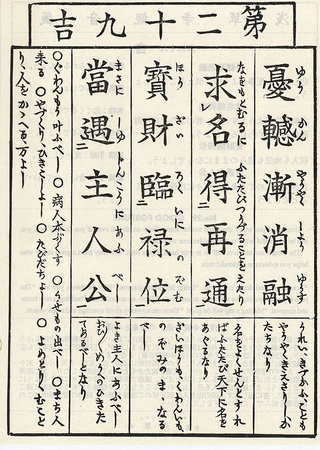 第二十九吉
憂轗漸消融
うれい、きづかふことも
やうやくきえさりしか
たちなり
求名得再通
なをもとむるに ふたたびつうずることをえたり
名をよくせんとすれ
ばふたたび天下に名を
あぐるなり
寶財臨禄位
ほう ざい ろくいに のぞむ
ざいほうもくわんいも
のぞみのまゝなる
べし
當遇主人公
まさに しゆじんこうにあふ べし
よき主人にあふべし
てあるべしとなり
○ぐわんもう叶ふべし ○病人本ぷくす ○うせもの出べし ○まち人
来る ○やづくり、ひきこしよし ○たびだちよし ○よめとりむこと
り、人をかゝへる、万よし